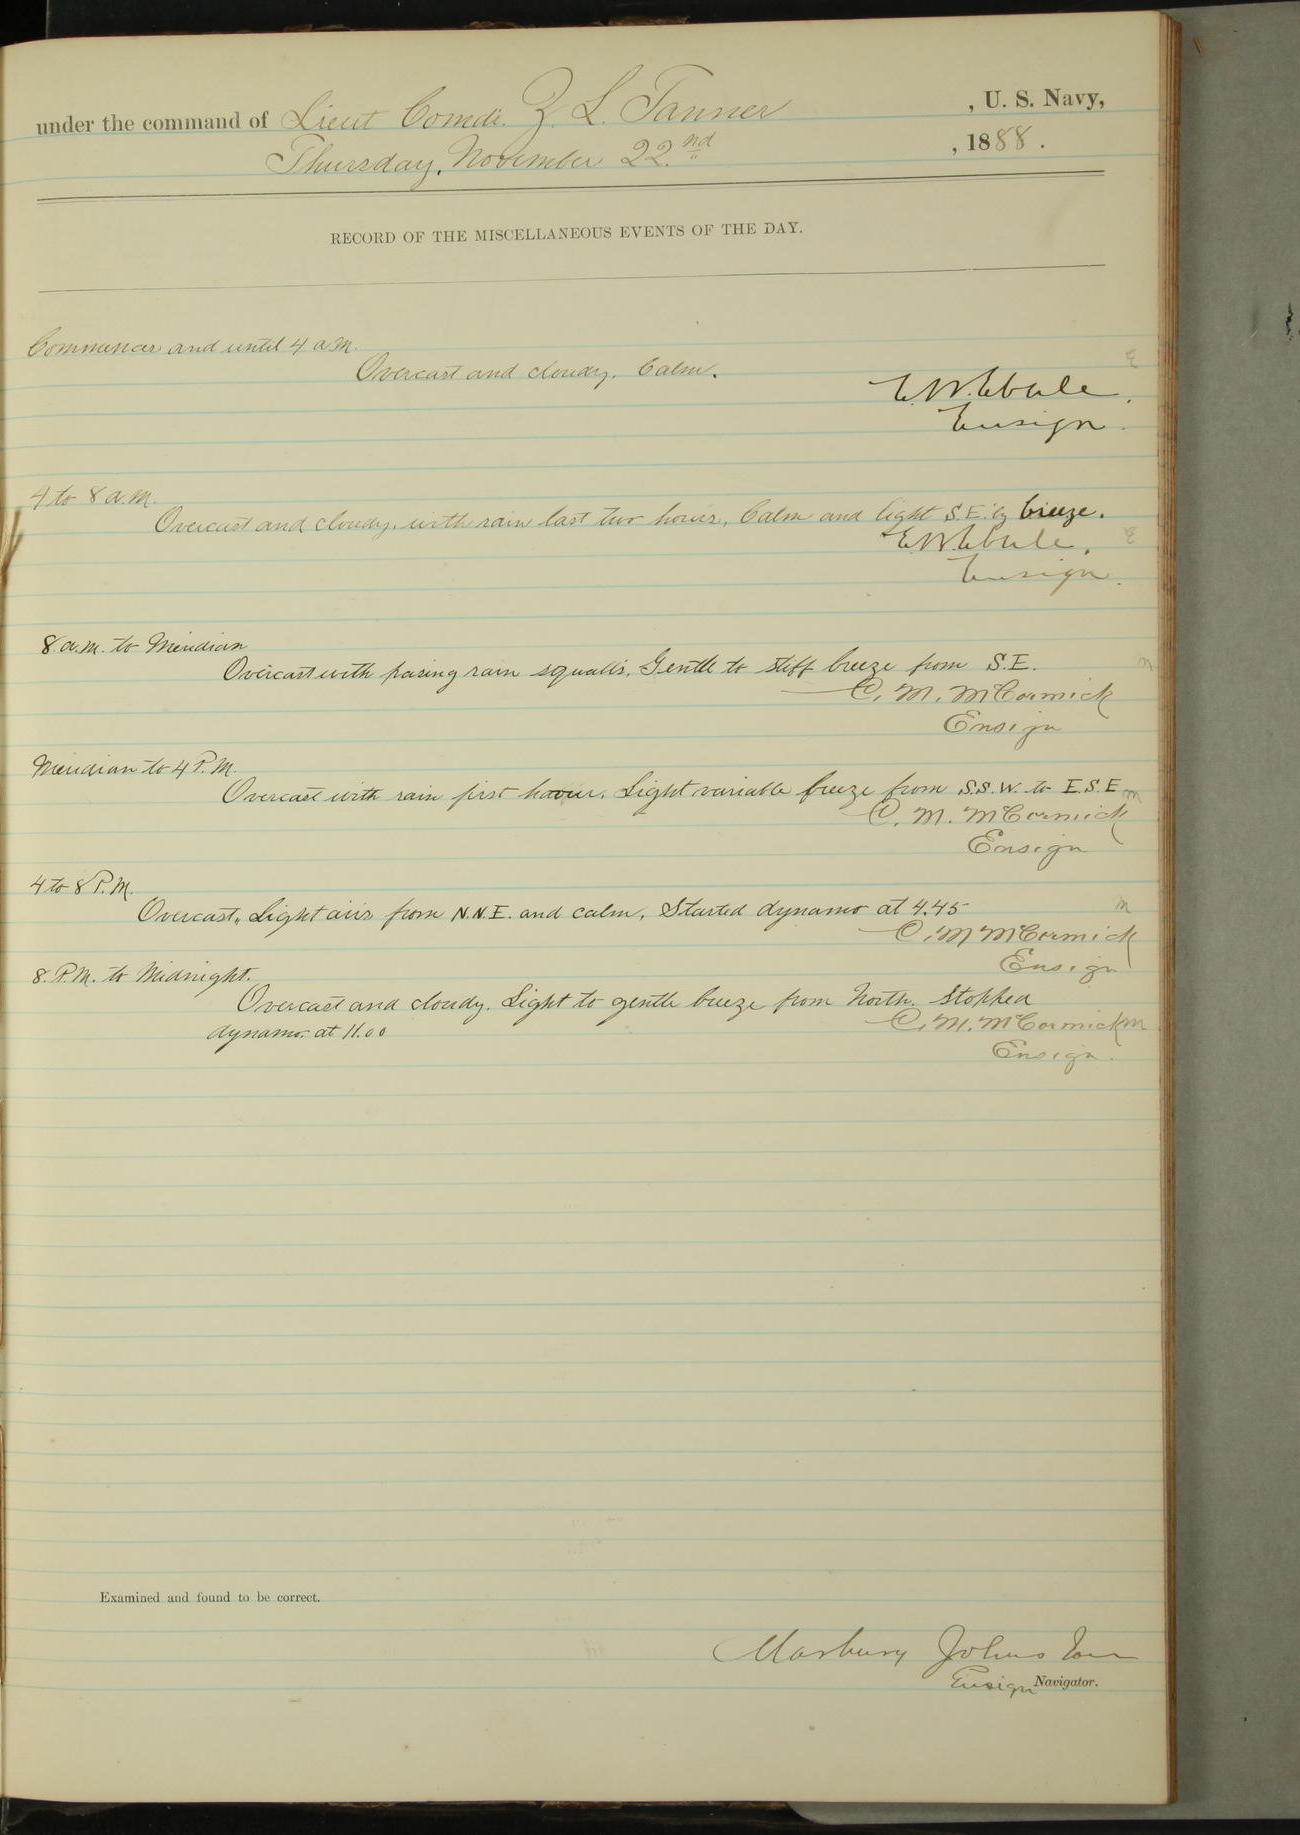 under the command of Lieut Comdr. Z. L. Tanner , U. S. Navy,
Thursday, November 22.nd , 1888.
RECORD OF THE MISCELLANEOUS EVENTS OF THE DAY.
Commences and until 4 a.m.
Overcast and cloudy. Calm.
E
E. W. Eberle.
Ensign.
4 to 8 a.m.
Overcast and cloudy, with rain last two hours, Calm and light S.E.'ly breeze.
E. W. Eberle. E
Ensign.
8 a.m. to Meridian
Overcast with passing rain squalls. Gentle to stiff breeze from S.E. m
C. M. McCormick
Ensign
Meridian to 4 P.M.
Overcast with rain first hour. Light variable breeze from S.S.W. to E.S.E m
C. M. McCormick
Ensign
4 to 8 P.M.
Overcast, Light airs from N.N.E. and calm. Started dynamo at 4.45 m
C. M McCormick
Ensign
8. P.M. to Midnight.
Overcast and cloudy. Light to gentle breeze from North. Stopped
dynamo at 11.00 C. M. McCormick m
Ensign.
Examined and found to be correct.
Marbury Johnston
Ensign Navigator.